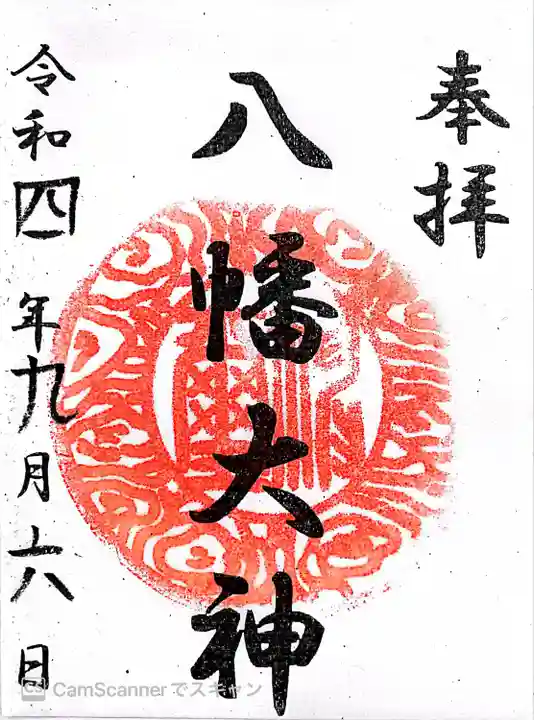 奉拝
八幡大神
令和四年九月六日
CS CamScannerでスキャン